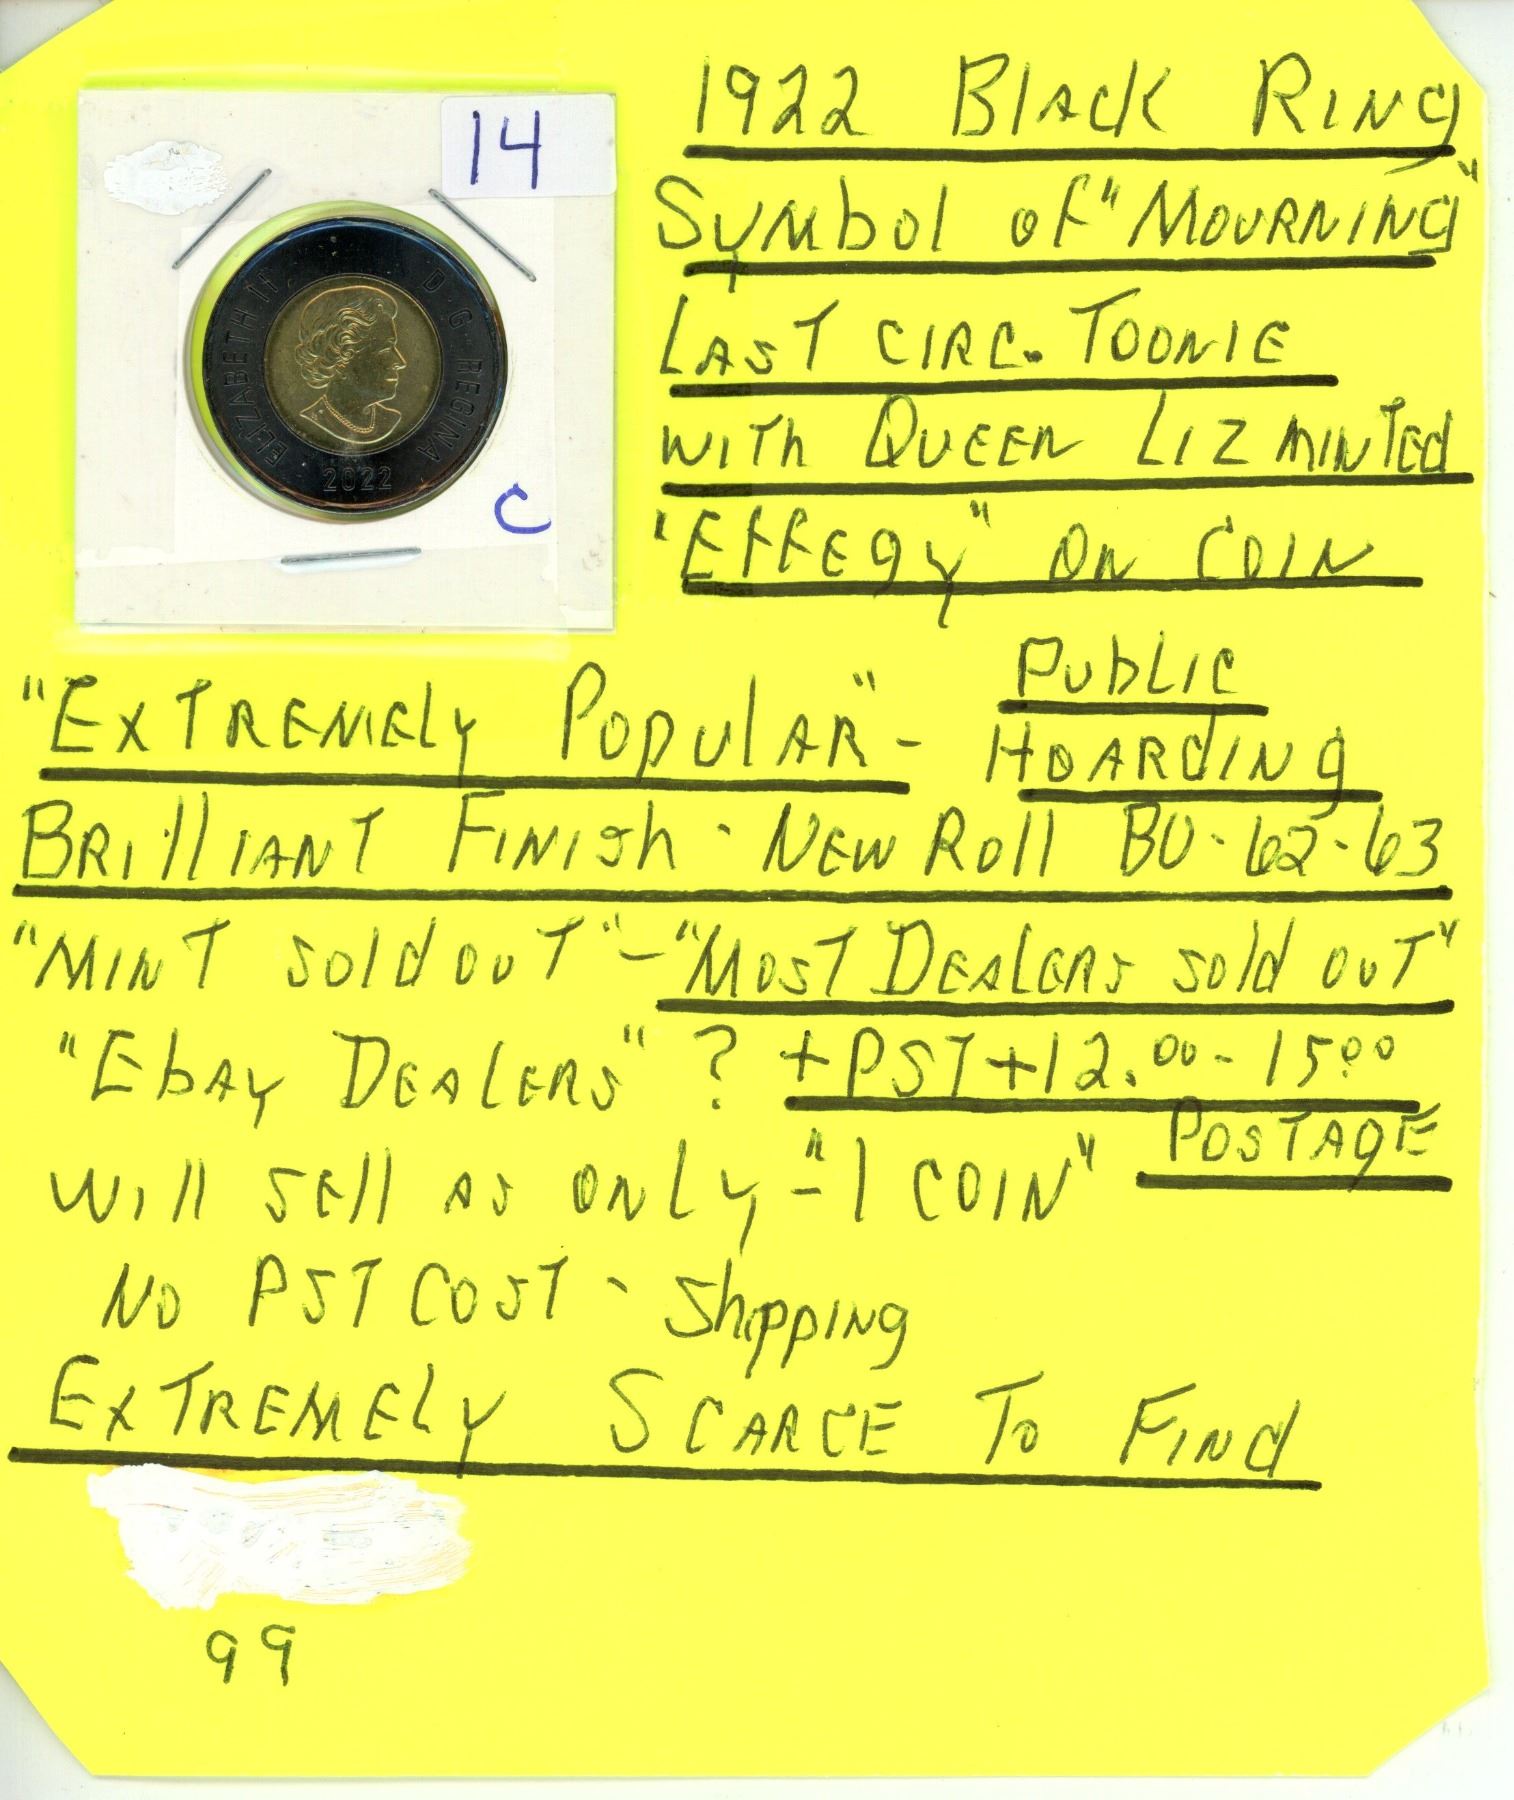 14
ELIZABETH II D·G·REGINA
2022
C
1922 Black Ring
Symbol of "Mourning"
Last circ. Toonie
with Queen Liz minted
"Effegy" on coin
"Extremely Popular" - Public
Hoarding
Brilliant Finish - New Roll BU-62-63
"Mint sold out" - "Most Dealers sold out"
"Ebay Dealers" ? + PST + 12.00 - 15.00
Postage
will sell as only - "1 coin"
No PST cost - Shipping
Extremely Scarce To Find
99